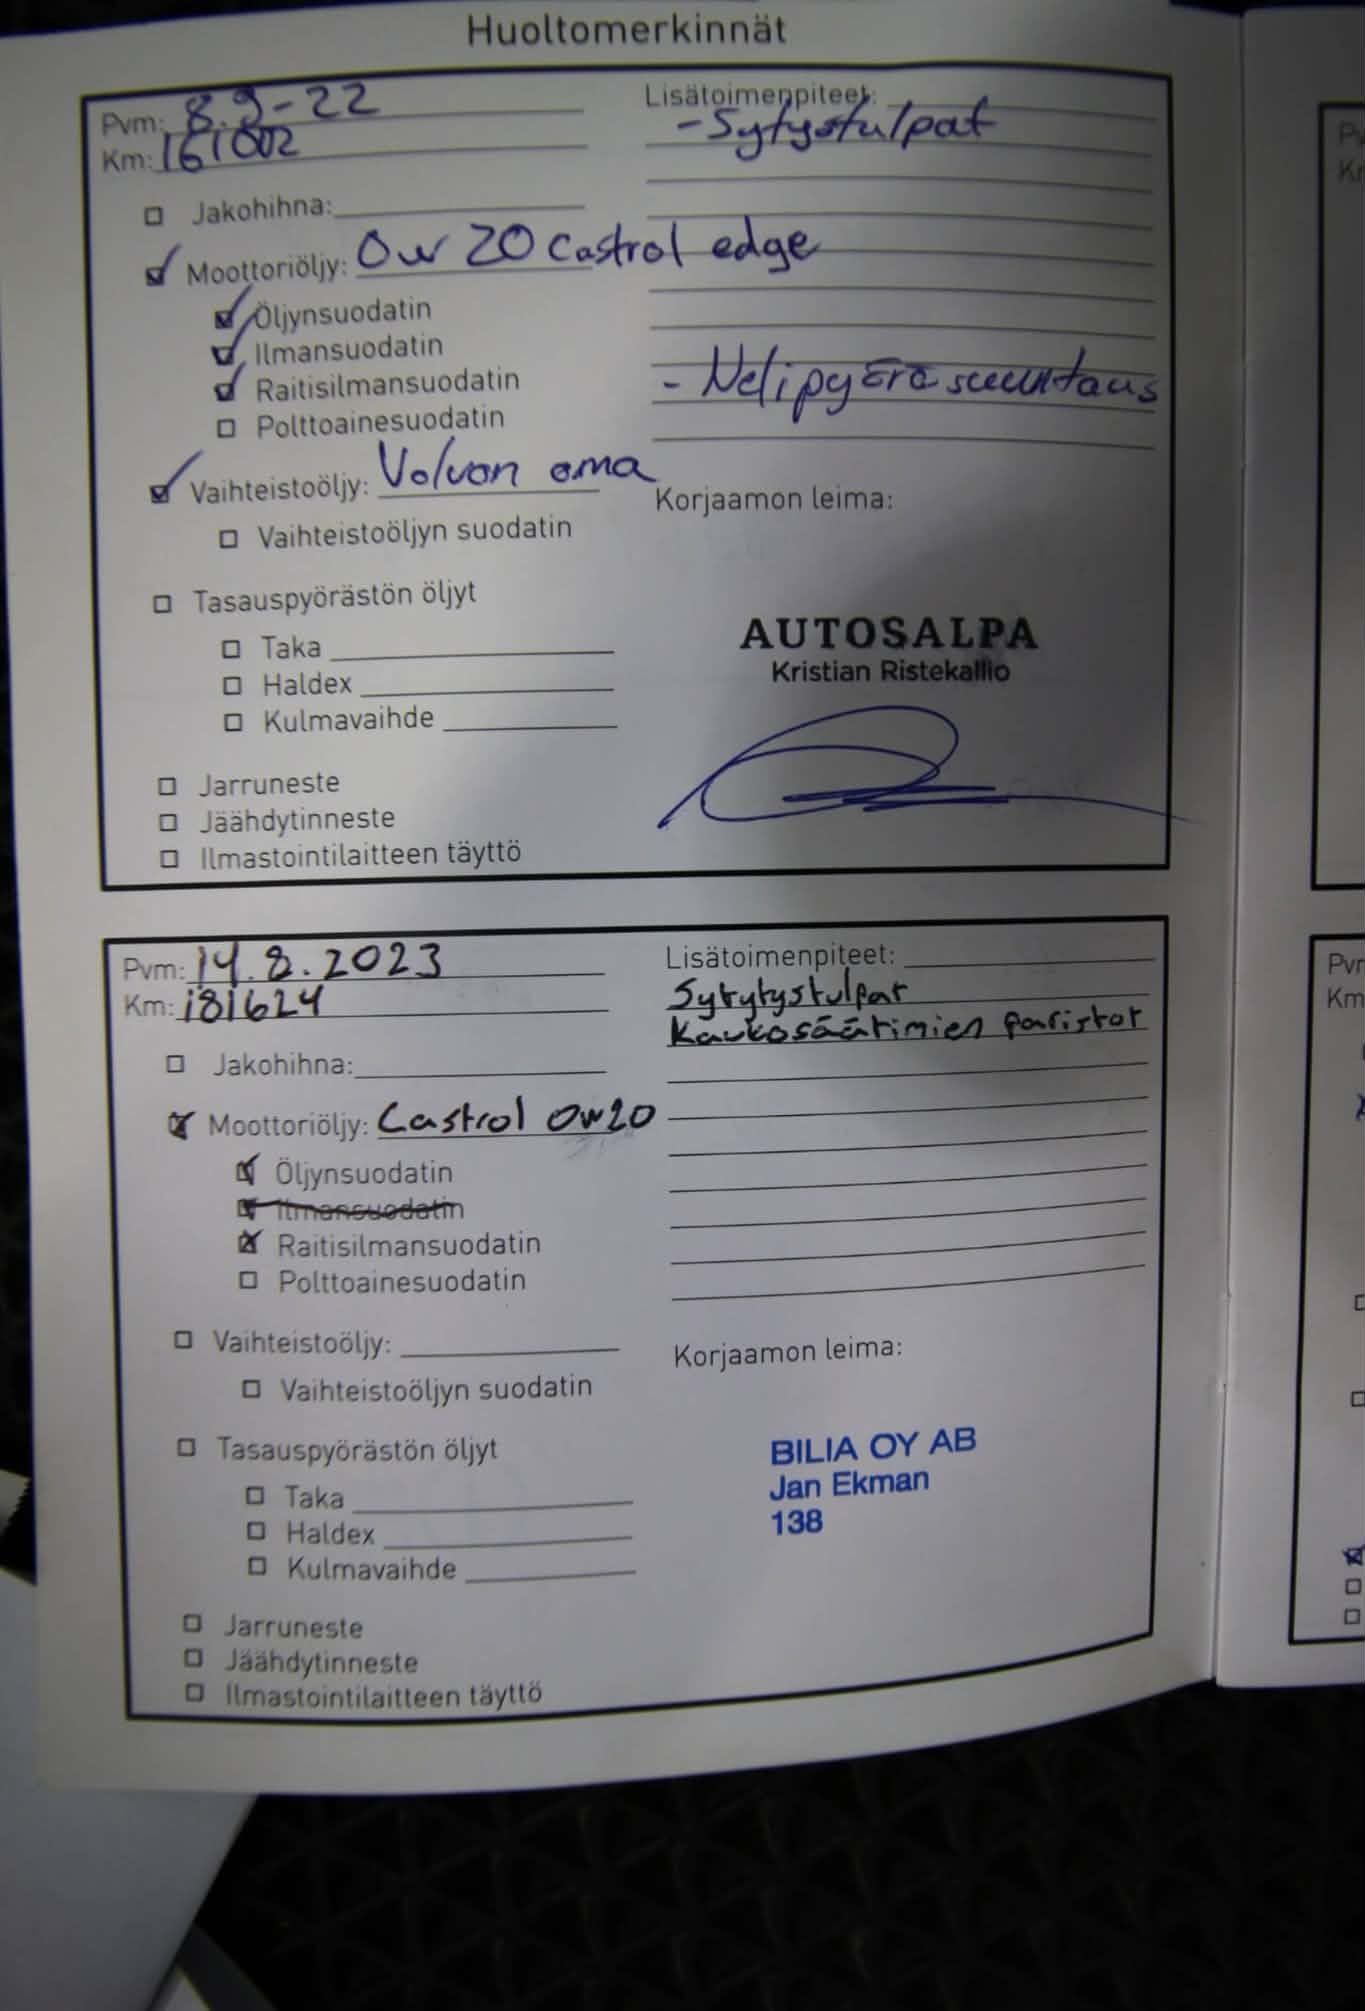 Huoltomerkinnät
Pvm: 8.9-22
Km: 161002
Lisätoimenpiteet:
- Sytystulpat
Jakohihna:
Moottoriöljy: 0w 20 Castrol edge
Öljynsuodatin
Ilmansuodatin
Raitisilmansuodatin
Polttoainesuodatin
- Nelipyöräsuuntaus
Vaihteistoöljy: Volvon oma
Vaihteistoöljyn suodatin
Korjaamon leima:
Tasauspyörästön öljyt
Taka
Haldex
Kulmavaihde
AUTOSALPA
Kristian Ristekallio
Jarruneste
Jäähdytinneste
Ilmastointilaitteen täyttö
Pvm: 14.8.2023
Km: 181624
Lisätoimenpiteet:
Sytytystulpat
Kaukosäätimien paristot
Jakohihna:
Moottoriöljy: Castrol 0w20
Öljynsuodatin
Ilmansuodatin
Raitisilmansuodatin
Polttoainesuodatin
Vaihteistoöljy:
Vaihteistoöljyn suodatin
Korjaamon leima:
Tasauspyörästön öljyt
Taka
Haldex
Kulmavaihde
BILIA OY AB
Jan Ekman
138
Jarruneste
Jäähdytinneste
Ilmastointilaitteen täyttö
Km